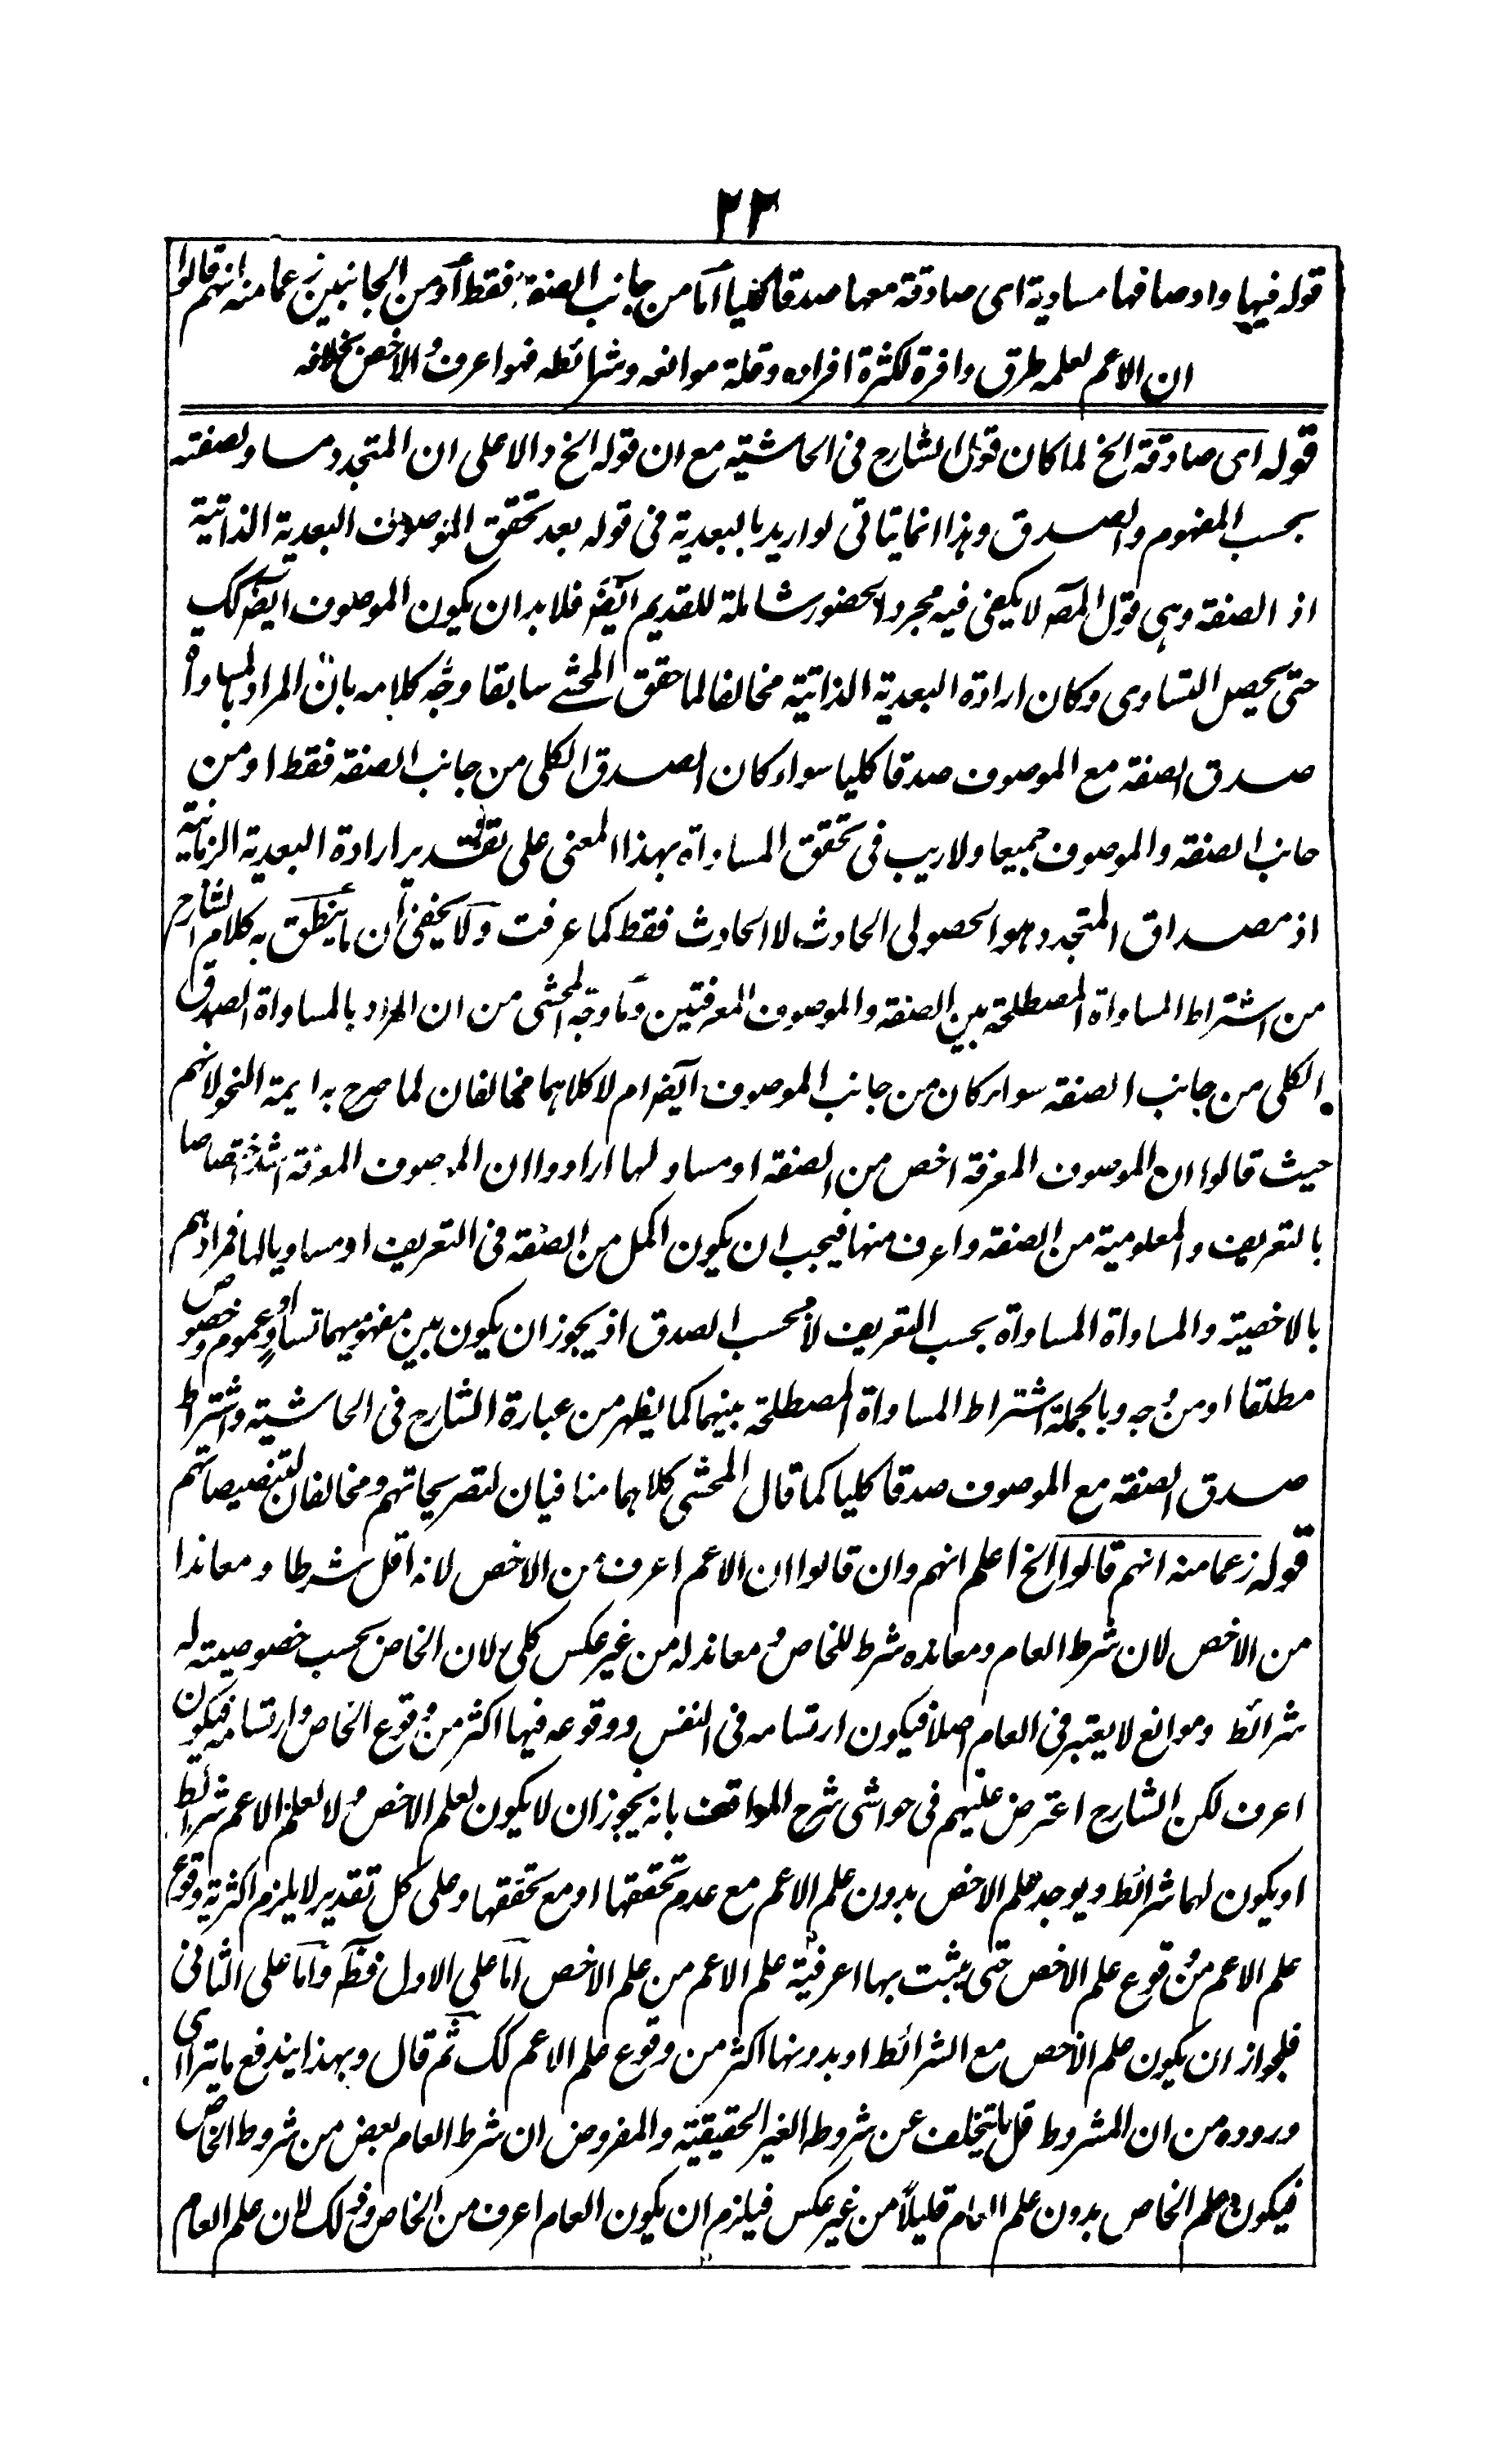 ٢٣
قوله فيها واوصافها مساوية اى صادقة معها صدقا كليا اما من جانب الصفة فقط او من الجانبين زعما منه انهم قالوا
ان الاعم لعلمه طرق وافرة لكثرة افراده وقلة موانعه وشرائطه فهو اعرف والاخص بخلافه
قوله اى صادقة الخ لما كان قول الشارح فى الحاشية مع ان قوله الخ دالا على ان المتجدد مساو لصفته
بحسب المفهوم والصدق وهذا انما يتاتى لو اريد بالبعدية فى قوله بعد تحقق الموصوف البعدية الذاتية
اذ الصفة وهى قول المصـ لا يكفى فيه مجرد الحضور شاملة للقديم ايضـ فلا بد ان يكون الموصوف ايضـ كك
حتى يحصل التساوى وكان ارادة البعدية الذاتية مخالفا لما حقق المحشى سابقا وجّه كلامه بانّ المراد بالمساواة
صدق الصفة مع الموصوف صدقا كليا سواء كان الصدق الكلى من جانب الصفة فقط او من
جانب الصفة والموصوف جميعا ولا ريب فى تحقق المساواة بهذا المعنى على تقدير ارادة البعدية الزمانية
اذ مصداق المتجدد هو الحصولى الحادث لا الحادث فقط كما عرفت ولا يخفى ان ما ينطق به كلام الشارح
من اشتراط المساواة المصطلحة بين الصفة والموصوف المعرفتين وما وجّه المحشى من ان المراد بالمساواة الصدق
الكلى من جانب الصفة سواء كان من جانب الموصوف ايضـ ام لا كلاهما مخالفان لما صرح به ايمة النحو لانهم
حيث قالوا ان الموصوف المعرفة اخص من الصفة او مساو لها ارادوا ان الموصوف المعرفة اشد اختصاصا
بالتعريف والمعلومية من الصفة واعرف منها فيجب ان يكون اكمل من الصفة فى التعريف او مساويا لها فمرادهم
بالاخصية والمساواة المساواة بحسب التعريف لا بحسب الصدق اذ يجوز ان يكون بين مفهوميهما تساوٍ او عموم وخصوص
مطلقا او من وجه وبالجملة اشتراط المساواة المصطلحة بينهما كما يظهر من عبارة الشارح فى الحاشية واشتراط
صدق الصفة مع الموصوف صدقا كليا كما قال المحشى كلاهما منافيان لتصريحاتهم ومخالفان لتنصيصاتهم
قوله زعما منه انهم قالوا الخ اعلم انهم وان قالوا ان الاعم اعرف من الاخص لانه اقل شرطا ومعاندا
من الاخص لان شرط العام ومعانده شرط للخاص ومعاند له من غير عكس كلى لان الخاص بحسب خصوصيته له
شرائط وموانع لا يعتبر فى العام اصلا فيكون ارتسامه فى النفس ووقوعه فيها اكثر من وقوع الخاص وارتسامه فيكون
اعرف لكن الشارح اعترض عليهم فى حواشى شرح المواقف بانه يجوز ان لا يكون لعلم الاخص ولا لعلم الاعم شرائط
او يكون لهما شرائط ويوجد علم الاخص بدون علم الاعم مع عدم تحققها او مع تحققها وعلى كل تقدير لا يلزم اكثرية وقوع
علم الاعم من وقوع علم الاخص حتى يثبت بها اعرفية علم الاعم من علم الاخص اما على الاول فظـ واما على الثانى
فلجواز ان يكون علم الاخص مع الشرائط او بدونها اكثر من وقوع علم الاعم كك ثم قال وبهذا يندفع ما يتراأى
وروده من ان المشروط قل ما يتخلف عن شروطه الغير الحقيقية والمفروض ان شرط العام بعض من شروط الخاص
فيكون علم الخاص بدون علم العام قليلاً من غير عكس فيلزم ان يكون العام اعرف من الخاص وذلك لان علم العام